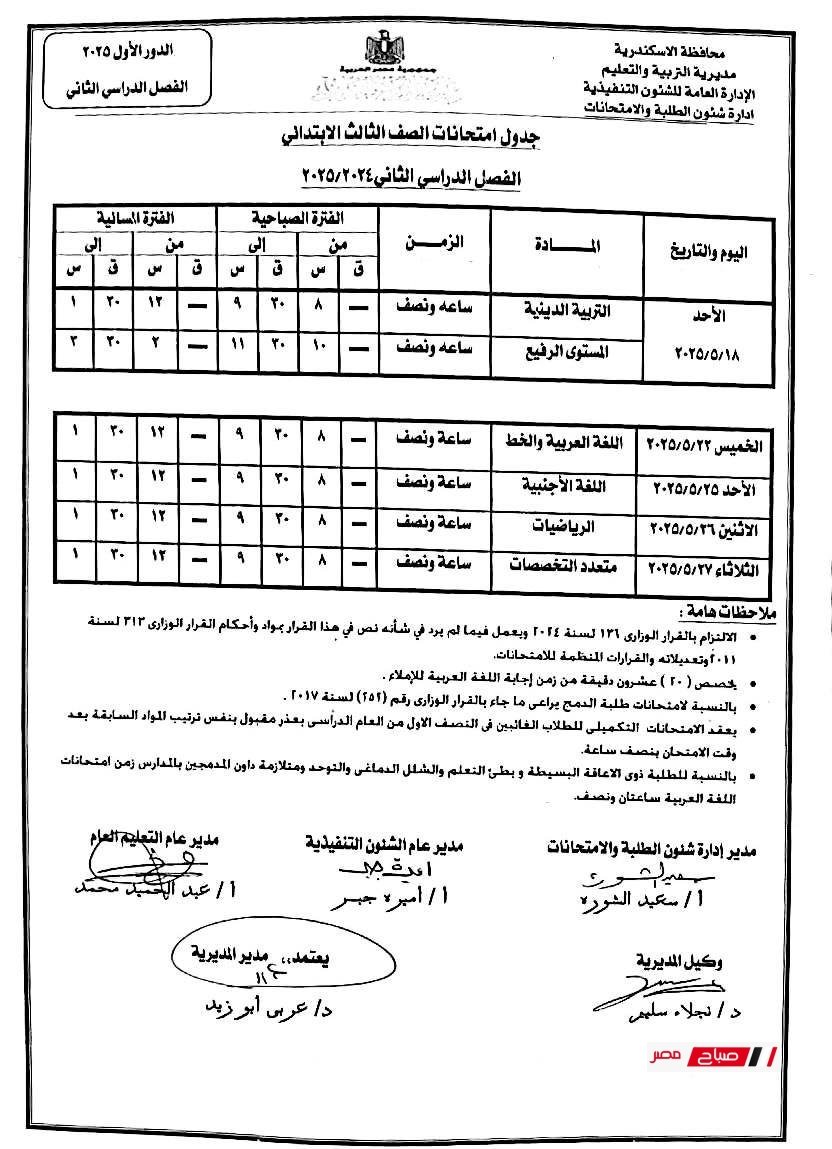 محافظة الاسكندرية
مديرية التربية والتعليم
الإدارة العامة للشئون التنفيذية
ادارة شئون الطلبة والامتحانات
جمهورية مصر العربية
الدور الأول ٢٠٢٥
الفصل الدراسي الثاني
جدول امتحانات الصف الثالث الابتدائي
الفصل الدراسي الثاني ٢٠٢٥/٢٠٢٤
اليوم والتاريخ المـــادة الزمـــن الفترة الصباحية الفترة المسائية
من إلى من إلى
ق س ق س ق س ق س
الأحد التربية الدينية ساعه ونصف — ٨ ٣٠ ٩ — ١٢ ٣٠ ١
٢٠٢٥/٥/١٨ المستوى الرفيع ساعه ونصف — ١٠ ٣٠ ١١ — ٢ ٣٠ ٣
الخميس ٢٠٢٥/٥/٢٢ اللغة العربية والخط ساعة ونصف — ٨ ٣٠ ٩ — ١٢ ٣٠ ١
الأحد ٢٠٢٥/٥/٢٥ اللغة الأجنبية ساعة ونصف — ٨ ٣٠ ٩ — ١٢ ٣٠ ١
الاثنين ٢٠٢٥/٥/٢٦ الرياضيات ساعة ونصف — ٨ ٣٠ ٩ — ١٢ ٣٠ ١
الثلاثاء ٢٠٢٥/٥/٢٧ متعدد التخصصات ساعة ونصف — ٨ ٣٠ ٩ — ١٢ ٣٠ ١
ملاحظات هامة :
• الالتزام بالقرار الوزارى ١٣٦ لسنة ٢٠٢٤ ويعمل فيما لم يرد في شأنه نص في هذا القرار بمواد وأحكام القرار الوزارى ٣١٣ لسنة
٢٠١١ وتعديلاته والقرارات المنظمة للامتحانات.
• يخصص ( ٢٠ ) عشرون دقيقة من زمن إجابة اللغة العربية للإملاء .
• بالنسبة لامتحانات طلبة الدمج يراعى ما جاء بالقرار الوزارى رقم (٢٥٢) لسنة ٢٠١٧ .
• يعقد الامتحانات التكميلى للطلاب الغائبين فى النصف الاول من العام الدرأسى بعذر مقبول بنفس ترتيب المواد السابقة بعد
وقت الامتحان بنصف ساعة.
• بالنسبة للطلبة ذوى الاعاقة البسيطة و بطئ التعلم والشلل الدماغى والتوحد ومتلازمة داون المدمجين بالمدارس زمن امتحانات
اللغة العربية ساعتان ونصف.
مدير إدارة شئون الطلبة والامتحانات مدير عام الشئون التنفيذية مدير عام التعليم العام
أميرة جبر
أ/ سعيد الشوره أ/ أميره جبر أ/ عبد الحميد محمد
وكيل المديرية يعتمد،، مدير المديرية
د/ نجلاء سليم د/ عربى أبو زيد
صباح مصر